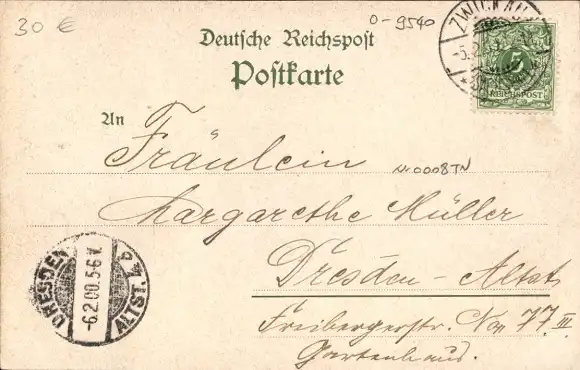 30 €
0-9540
ZWICKAU
-5.2
Deutsche Reichspost
Postkarte
REICHSPOST
An
Fräulein
Margarethe Müller
Dresden-Altst.
Freibergerstr. No 77 III
Gartenhaus.
DRESDEN
-6.2.00.5-6V.
ALTST. 4